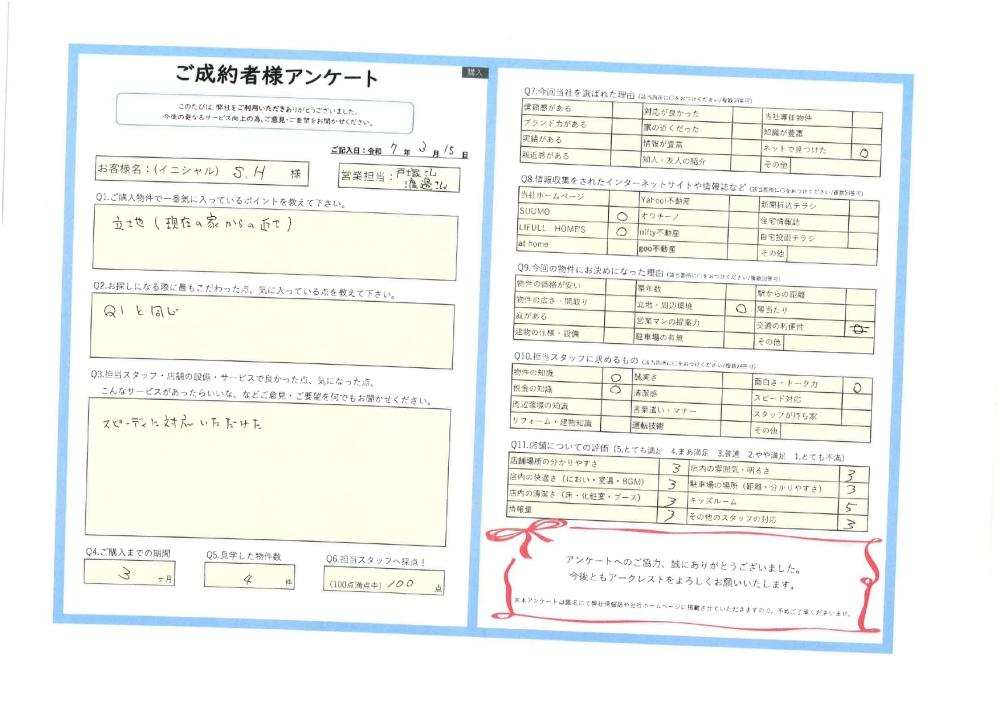 ご成約者様アンケート
購入
このたびは、弊社をご利用いただきありがとうございました。
今後の更なるサービス向上の為、ご意見・ご要望をお聞かせください。
ご記入日：令和 7 年 3 月 15 日
お客様名：(イニシャル) S.H 様
営業担当：
Q1.ご購入物件で一番気に入っているポイントを教えて下さい。
立地(現在の家からの近さ)
Q2.お探しになる際に最もこだわった点、気に入っている点を教えて下さい。
Q1と同じ
Q3.担当スタッフ・店舗の設備・サービスで良かった点、気になった点、
こんなサービスがあったらいいな、などご意見・ご要望を何でもお聞かせください。
スピーディに対応いただけた
Q4.ご購入までの期間
3 ヶ月
Q5.見学した物件数
4 件
Q6.担当スタッフへ採点！
(100点満点中) 100 点
Q7.今回当社を選ばれた理由 (該当箇所に○をおつけください/複数回答可)
信頼感がある 対応が良かった 当社専任物件
ブランド力がある 家の近くだった 知識が豊富
実績がある 情報が豊富 ネットで見つけた ○
親近感がある 知人・友人の紹介 その他
Q8.情報収集をされたインターネットサイトや情報誌など (該当箇所に○をおつけください/複数回答可)
当社ホームページ Yahoo!不動産 新聞折込チラシ
SUUMO ○ オウチーノ 住宅情報誌
LIFULL HOME'S ○ nifty不動産 自宅投函チラシ
at home goo不動産 その他
Q9.今回の物件にお決めになった理由 (該当箇所に○をおつけください/複数回答可)
物件の価格が安い 築年数 駅からの距離
物件の広さ・間取り 立地・周辺環境 ○ 陽当たり
庭がある 営業マンの提案力 交通の利便性 ○
建物の仕様・設備 駐車場の有無 その他
Q10.担当スタッフに求めるもの (該当箇所に○をおつけください/複数回答可)
物件の知識 ○ 誠実さ 面白さ・トーク力 ○
税金の知識 ○ 清潔感 スピード対応
周辺環境の知識 言葉遣い・マナー スタッフが持ち家
リフォーム・建物知識 運転技術 その他
Q11.店舗についての評価 (5.とても満足 4.まあ満足 3.普通 2.やや満足 1.とても不満)
店舗場所の分かりやすさ 3 店内の雰囲気・明るさ 3
店内の快適さ (におい・室温・BGM) 3 駐車場の場所 (距離・分かりやすさ) 3
店内の清潔さ (床・化粧室・ブース) 3 キッズルーム 5
情報量 3 その他のスタッフの対応 3
アンケートへのご協力、誠にありがとうございました。
今後ともアークレストをよろしくお願いいたします。
※本アンケートは匿名にて弊社情報誌や当社ホームページに掲載させていただきますので、予めご了承くださいませ。